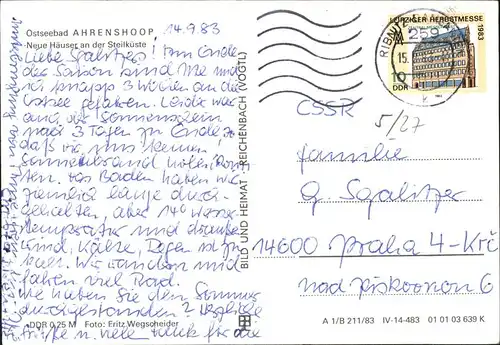 Ostseebad AHRENSHOOP
Neue Häuser an der Steilküste
14.9.83
Liebe Sgalitzers! Am Ende
der Saison sind Me und
ich knapp 3 Wochen an die
Ostsee gefahren. Leider war
auch der Sonnenschein
nach 3 Tagen zu Ende,
daß wir uns keinen
Sonnenbrand holen konn-
ten. Das Baden haben wir
ziemlich lange durch-
gehalten, aber 14° Wasser-
temperatur und draußen
Wind, Kälte, Regen ist zu
kalt. Wir wandern und
fahren viel Rad.
Wie haben Sie den Sommer
durchgestanden? Herzliche
Grüße u. viele für die
DDR 0,25 M Foto: Fritz Wegscheider
BILD UND HEIMAT · REICHENBACH (VOGTL)
LEIPZIGER HERBSTMESSE
1983
10
DDR
RIBNITZ
259
15.
ČSSR
5/27
Familie
G. Sgalitzer
14600 Praha 4-Krč
nad Pískovnou 6
A 1/B 211/83 IV-14-483 01 01 03 639 K